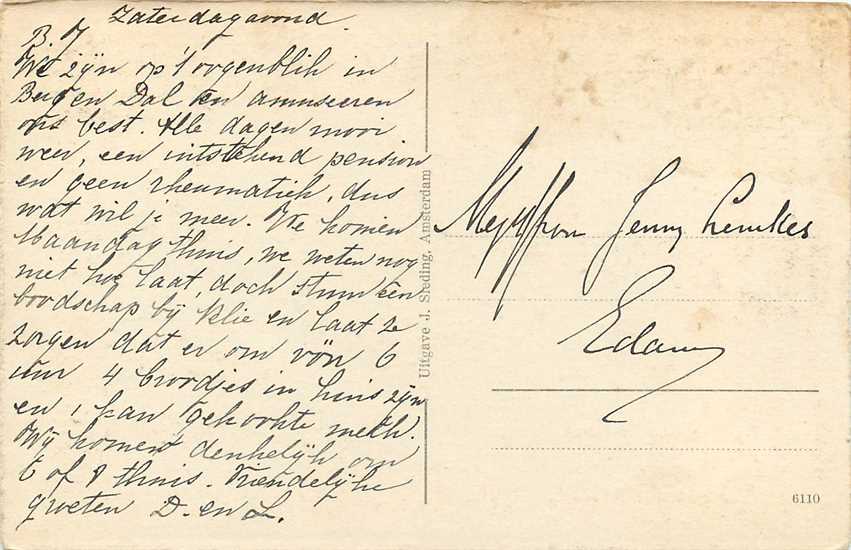 Zaterdagavond.
B. J.
We zijn op 't oogenblik in
Berg en Dal en amuseeren
ons best. Alle dagen mooi
weer, een uitstekend pension
en geen rheumatiek, dus
wat wil je meer. We komen
Maandag thuis, we weten nog
niet hoe laat, doch stuur een
boodschap bij Klie en laat ze
zorgen dat er om vóór 6
uur 4 broodjes in huis zijn
en 1 kan gekookte melk.
Wij komen denkelijk om
6 of 7 thuis. Vriendelijke
groeten D. en L.
Uitgave J. Sleding, Amsterdam
Mejuffrou Jenny Lemkes
Edam
6110